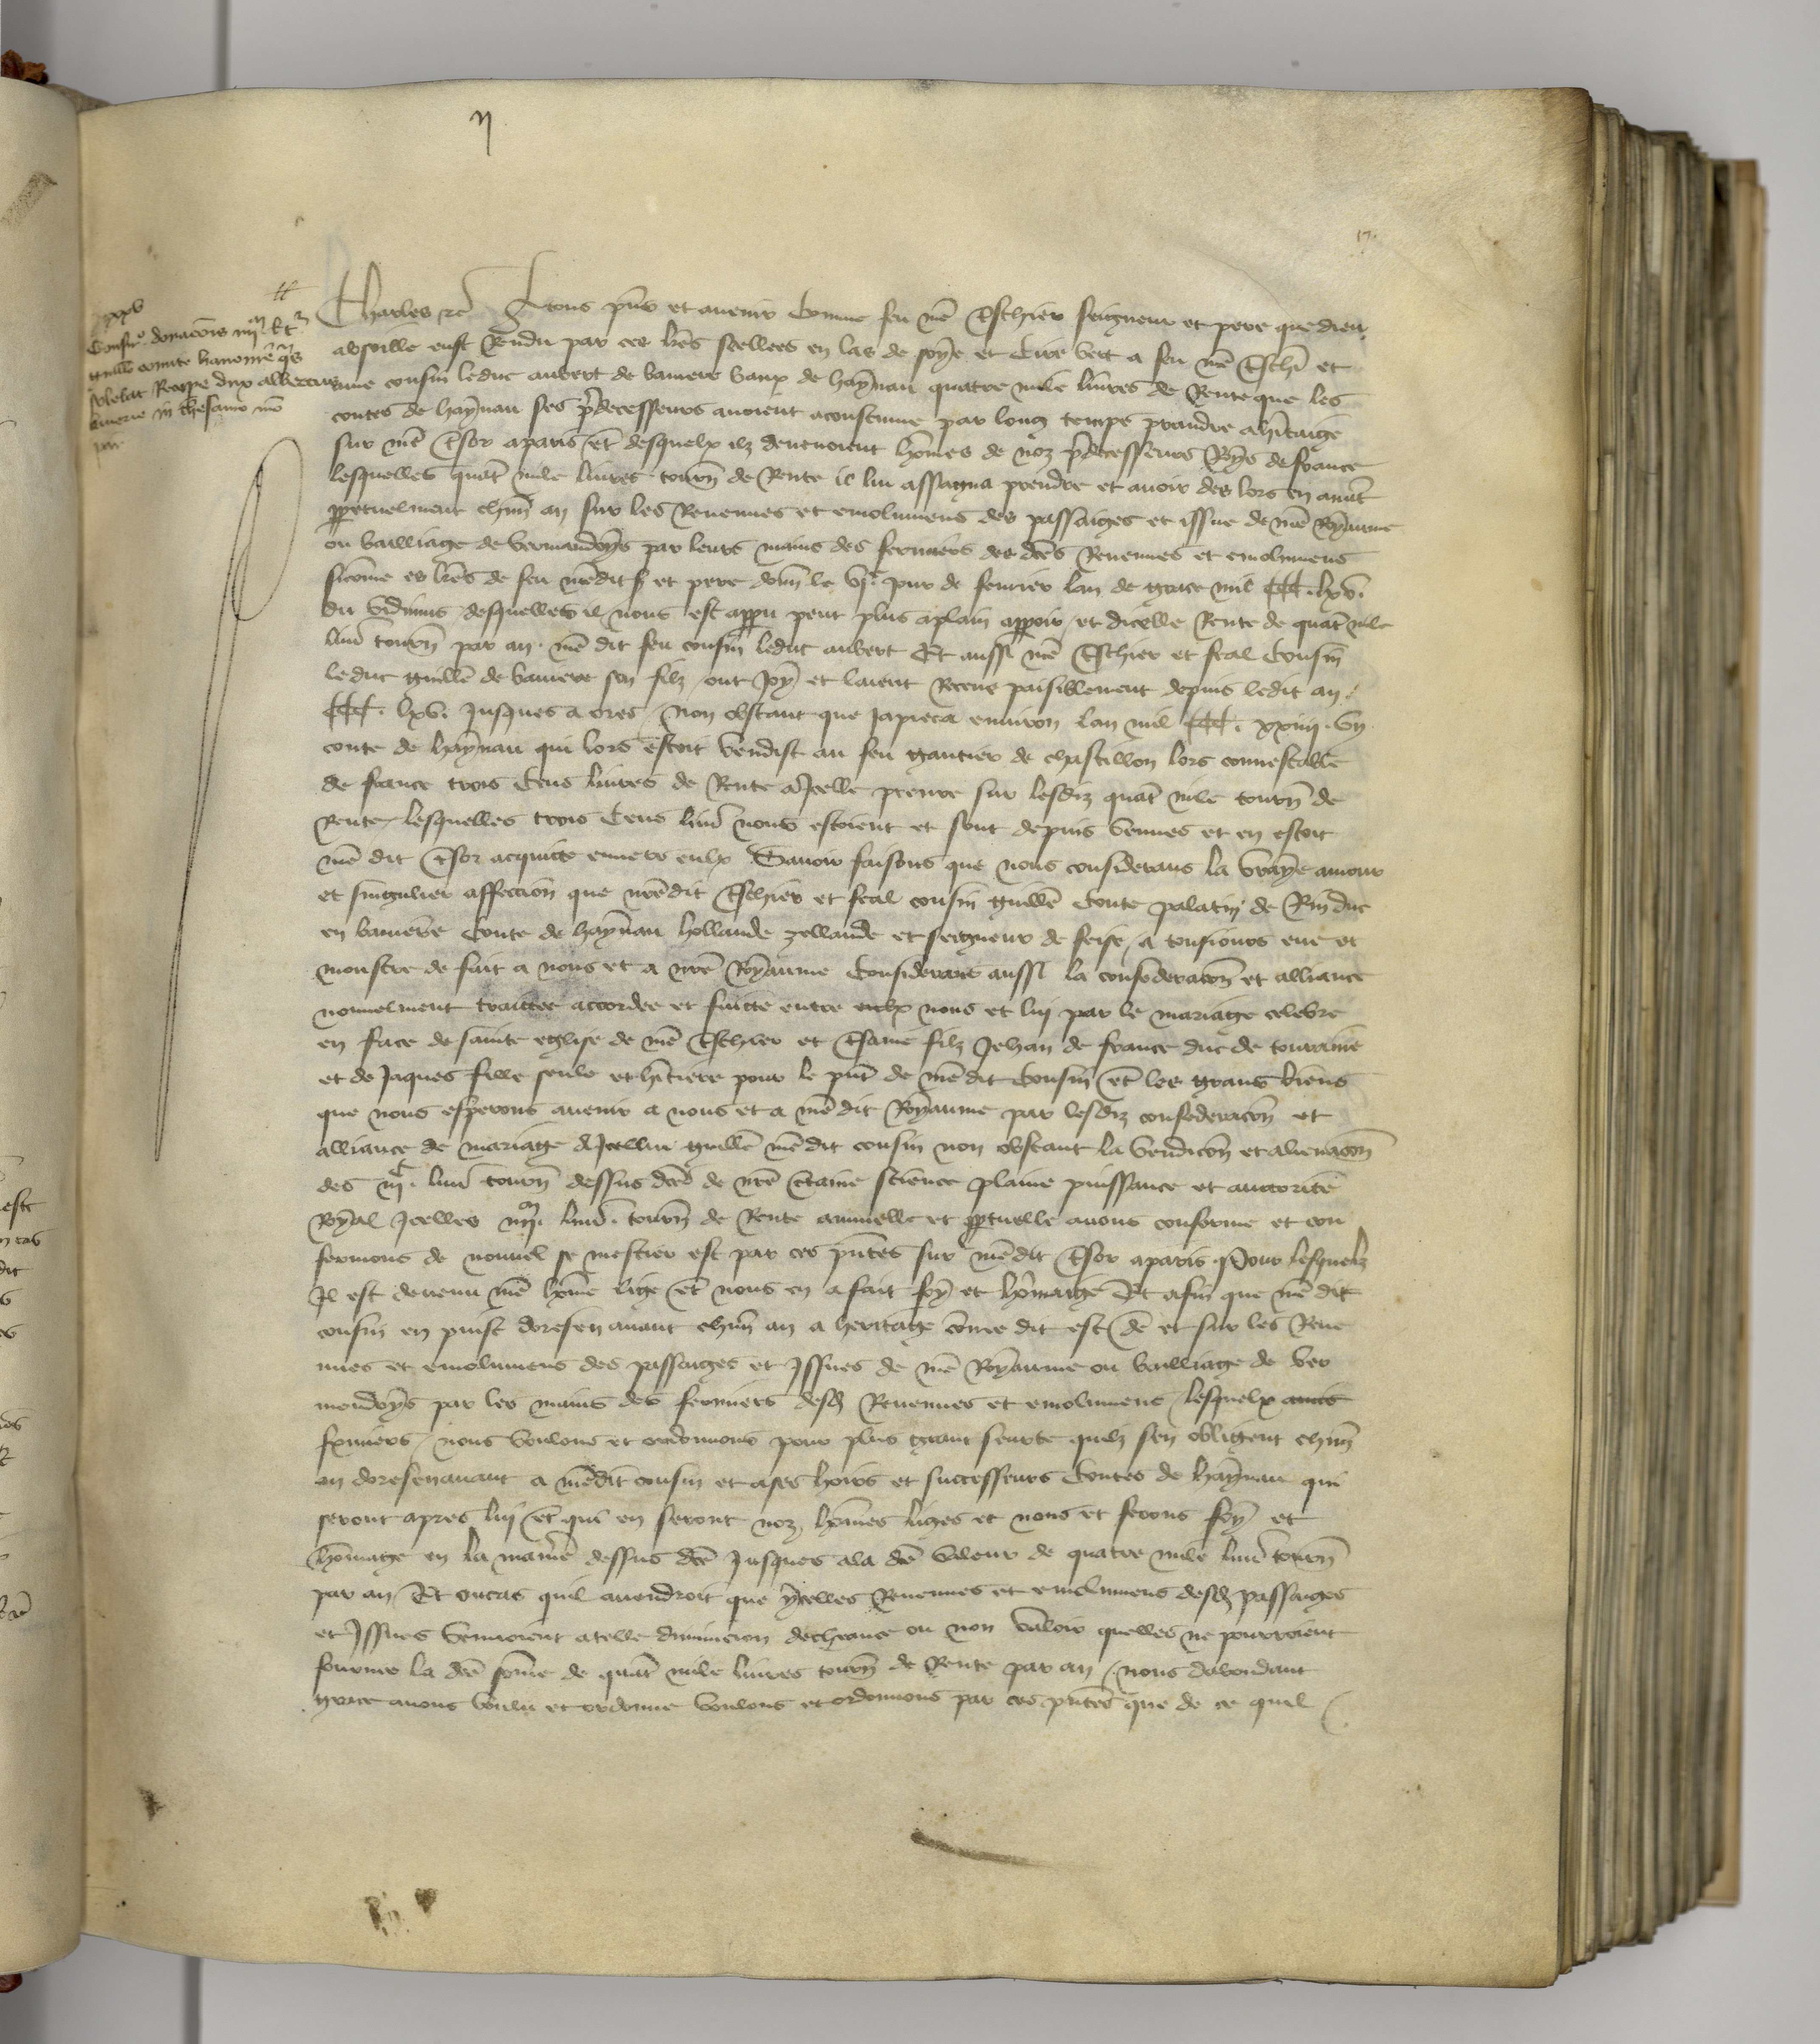 17.
xxv
Confirmo donacois iiij m lt
guillmo comite hanonie qs
solebat Recipe dux albertus
bauerie in thesauro nro
par
Charles etc A tous pns et auenir Comme feu nre treschier seigneur et pere que dieu
absoille eust Rendu par ces lres seellees en las de soye et Cire vert a feu nre treschier et
ame cousin le duc aubert de bauiere baux de haynau quatre mile liures de Rente que les
contes de haynau ses predecesseurs auoient acoustume par long temps prandre a heritaige
sur nre tresor a paris et desquelx ilz deuenoient homes de noz predecesseurs Roys de france
lesquelles quatre mile liures tourn de Rente il lui assigna prendre et auoir des lors en auant
perpetuelment chun an sur les Reuenues et emolumens des passaiges et issue de nre Royaume
ou bailliage de vermandoys par leurs mains des fermiers des des Reuenues et emolumens
sicome es lres de feu nredit sr et pere donn le vje jour de feurier lan de grace mil CCC. lxv.
du vidimus desquelles il nous est apparu peut plus aplain apparoir et dicelle Rente de quatre mile
liures tourn par an nre dit feu cousin le duc aubert Et aussi nre treschier et feal Cousin
le duc guille de bauiere son filz ont joy et laient Receue paisiblement depuis ledit an
CCC. lxv. jusques a ores non obstant que japieca enuiron lan mil CCC. xxiiij. un
conte de haynau qui lors estoit vendist au feu gautier de chastillon lors connestable
de france trois Cens liures de Rente a Icelle prenre sur lesdiz quatre mile tourn de
Rente lesquelles trois Cens liures nous estoient et sont depuis venues et en estoit
nre dit tresor acquitte enuers eulx Sauoir faisons que nous considerans la vraye amour
et singulier affection que nredit treschier et feal cousin guille Conte palatin de Rin duc
en bauiere Conte de haynau hollande zellande et seigneur de frise a tousiours eue et
monstre de fait a nous et a nre Royaume Considerans aussi la confederacon et alliance
nouuelment traittee accordee et faicte entre eulx nous et luy par le mariage celebre
en face de sainte eglise de nre treschier et tresame filz Jehan de france duc de touraine
et de Jaques fille seule et heritiere pour le pnt de nre dit Cousin et les grans biens
que nous esperons auenir a nous et a nre dit Royaume par lesdiz confederacon et
alliance de mariage A Icellui guille nre dit cousin non obstant la vendicon et alienacon
des iijc. liures tourn dessus des de nre certaine science plaine puissance et auctorite
Royal Icelles iiijm. liures. tourn de Rente annuelle et perpetuelle auons conferme et con
fermons de nouuel se mestier est par ces pntes sur nredit tresor a paris Pour lesquelz
Il est deuenu nre home lige et nous en a fait foy et homaige Et afin que nre dit
cousin en puist doresenauant chun an a heritaige come dit est de et sur les Reue
nues et emolumens des passaiges et Issues de nre Royaume ou bailliage de ver
mendoys par les mains des fermiers desd Reuenues et emolumens lesquelx amis
fermiers nous voulons et ordonnons pour plus grant seurte quilz sen obligent chun
an doresenauant a nredit cousin et a ses hoirs et successeurs Contes de haynau qui
seront apres luy et qui en seront noz homes liges et nous et ferons foy et
homage en la maniere dessus dee Jusques a la de valeur de quatre mile liures tourn
par an Et ou cas quil auendroit que ycelles Reuenues et emolumens desd passaiges
et Issues venroient a telle diminucion decheance ou non valoir quelles ne pourroient
fournir la dee some de quatre mile liures tourn de Rente par an nous dabondant
grace auons voulu et ordonne voulons et ordonnons par ces pntes que de ce quil